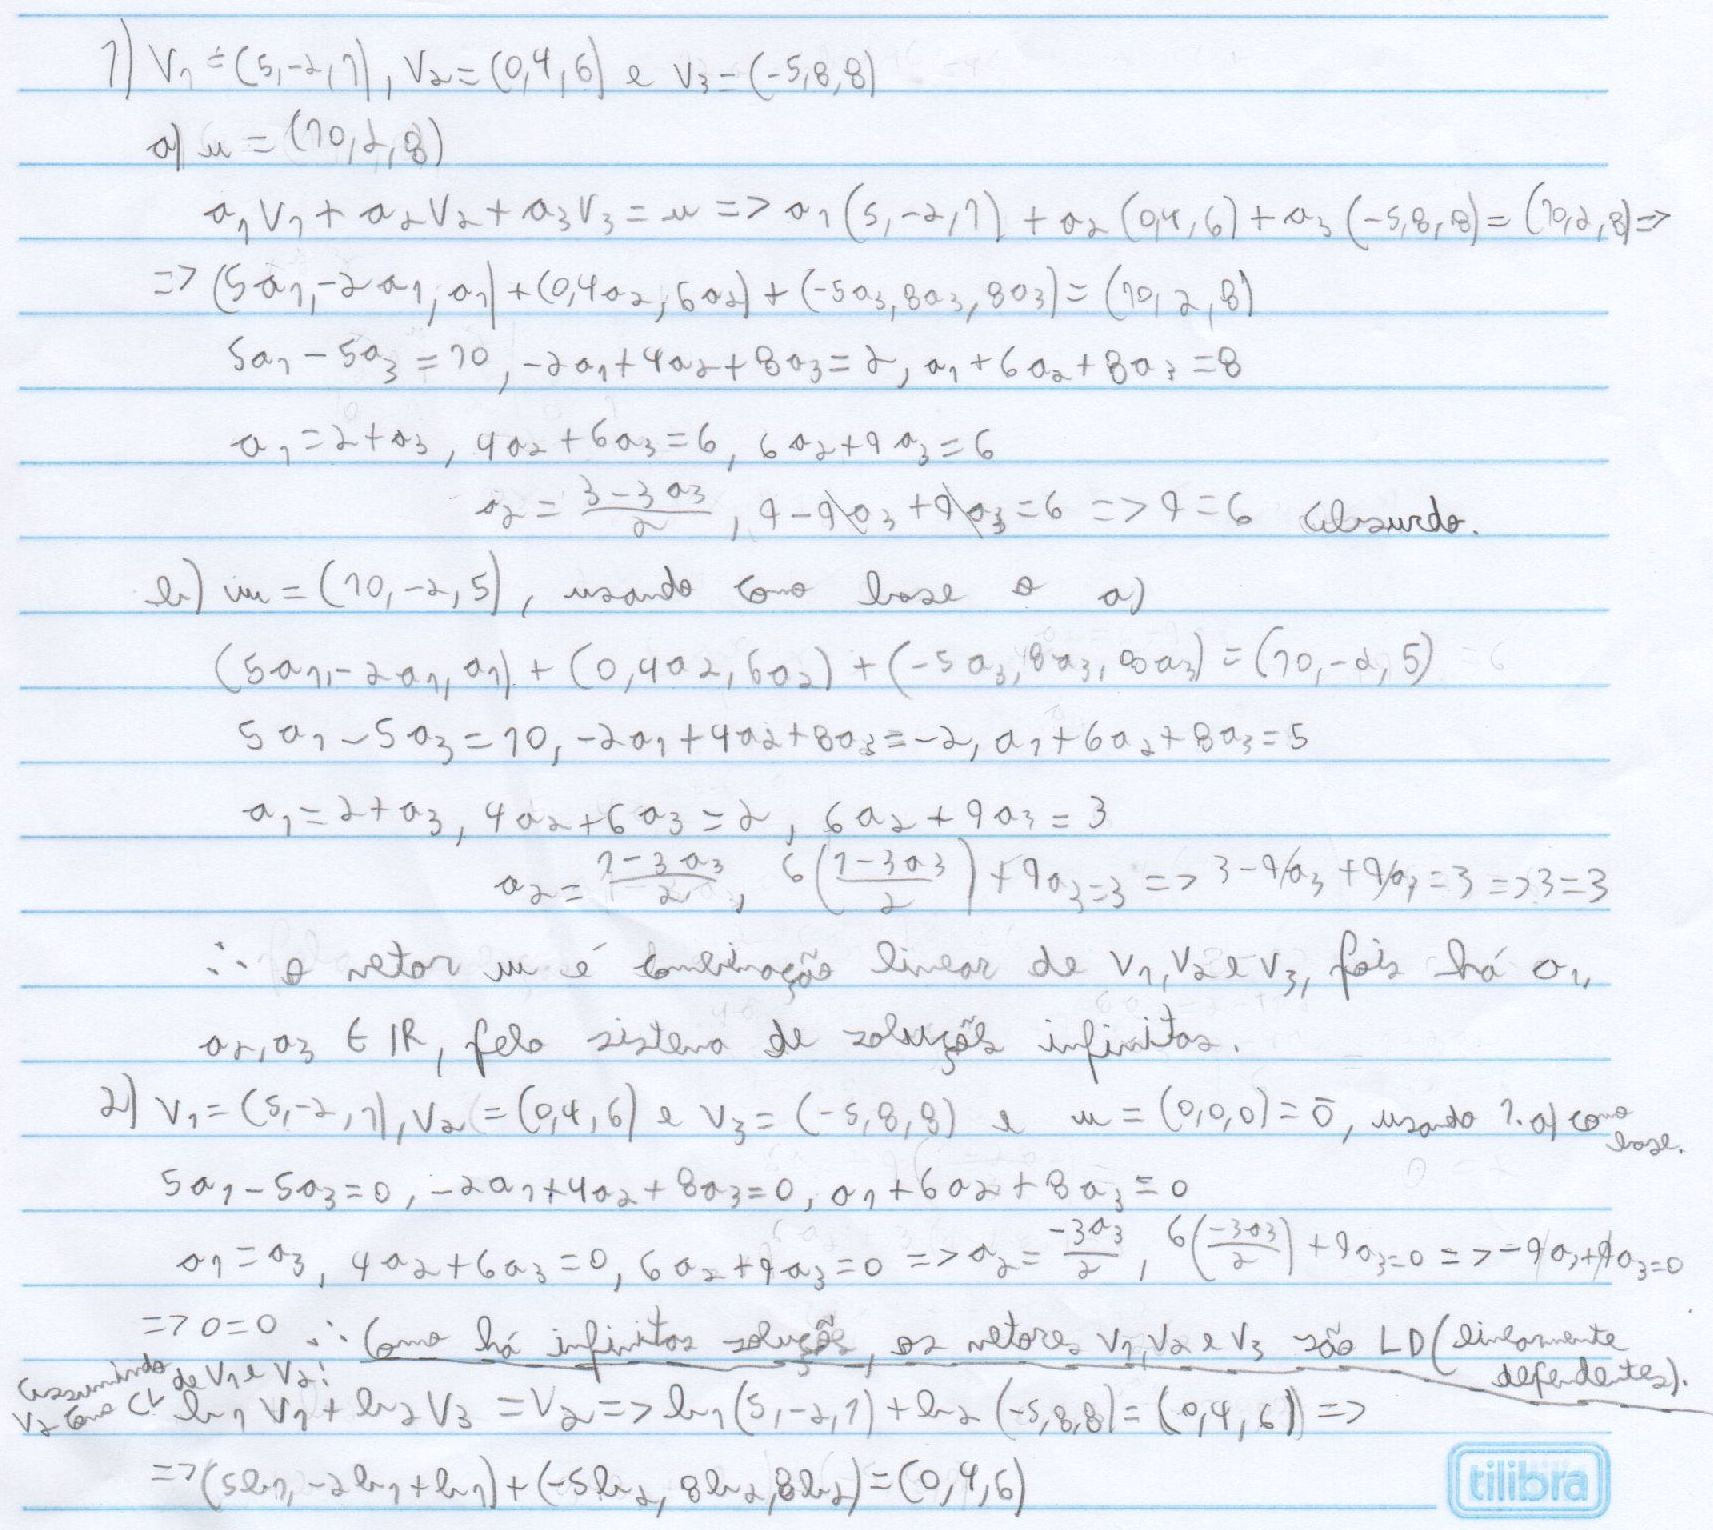 1) V₁ = (5,-2,1), V₂ = (0,4,6) e V₃ = (-5,8,8)
a) u = (10,2,8)
a₁V₁ + a₂V₂ + a₃V₃ = u => a₁(5,-2,1) + a₂(0,4,6) + a₃(-5,8,8) = (10,2,8) =>
=> (5a₁,-2a₁,a₁) + (0,4a₂,6a₂) + (-5a₃,8a₃,8a₃) = (10,2,8)
5a₁ - 5a₃ = 10, -2a₁ + 4a₂ + 8a₃ = 2, a₁ + 6a₂ + 8a₃ = 8
a₁ = 2 + a₃, 4a₂ + 6a₃ = 6, 6a₂ + 9a₃ = 6
a₂ = (3-3a₃)/2, 9 - 9a₃ + 9a₃ = 6 => 9 = 6 Absurdo.
b) w = (10,-2,5), usando como base o a)
(5a₁,-2a₁,a₁) + (0,4a₂,6a₂) + (-5a₃,8a₃,8a₃) = (10,-2,5)
5a₁ - 5a₃ = 10, -2a₁ + 4a₂ + 8a₃ = -2, a₁ + 6a₂ + 8a₃ = 5
a₁ = 2 + a₃, 4a₂ + 6a₃ = 2, 6a₂ + 9a₃ = 3
a₂ = (1-3a₃)/2, 6((1-3a₃)/2) + 9a₃ = 3 => 3 - 9a₃ + 9a₃ = 3 => 3 = 3
∴ o vetor w é combinação linear de V₁, V₂ e V₃, pois há a₁,
a₂, a₃ ∈ IR, pelo sistema de soluções infinitas.
2) V₁ = (5,-2,1), V₂ = (0,4,6) e V₃ = (-5,8,8) e u = (0,0,0) = 0̄, usando 1.a) como base.
5a₁ - 5a₃ = 0, -2a₁ + 4a₂ + 8a₃ = 0, a₁ + 6a₂ + 8a₃ = 0
a₁ = a₃, 4a₂ + 6a₃ = 0, 6a₂ + 9a₃ = 0 => a₂ = -3a₃/2, 6(-3a₃/2) + 9a₃ = 0 => -9a₃ + 9a₃ = 0
=> 0 = 0 ∴ Como há infinitas soluções, os vetores V₁, V₂ e V₃ são LD (linearmente dependentes).
Assumindo V₂ como CL de V₁ e V₂:
b₁V₁ + b₂V₃ = V₂ => b₁(5,-2,1) + b₂(-5,8,8) = (0,4,6) =>
=> (5b₁,-2b₁+b₁) + (-5b₂,8b₂,8b₂) = (0,4,6)
tilibra